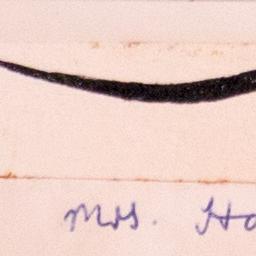 Mrs. Ho